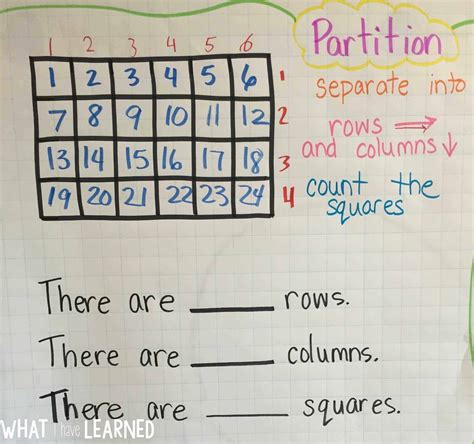 Partition
1 2 3 4 5 6
1 2 3 4 5 6 1
7 8 9 10 11 12 2
13 14 15 16 17 18 3
19 20 21 22 23 24 4
separate into
rows →
and columns ↓
count the
squares
There are ____ rows.
There are ____ columns.
There are ____ squares.
WHAT I have LEARNED